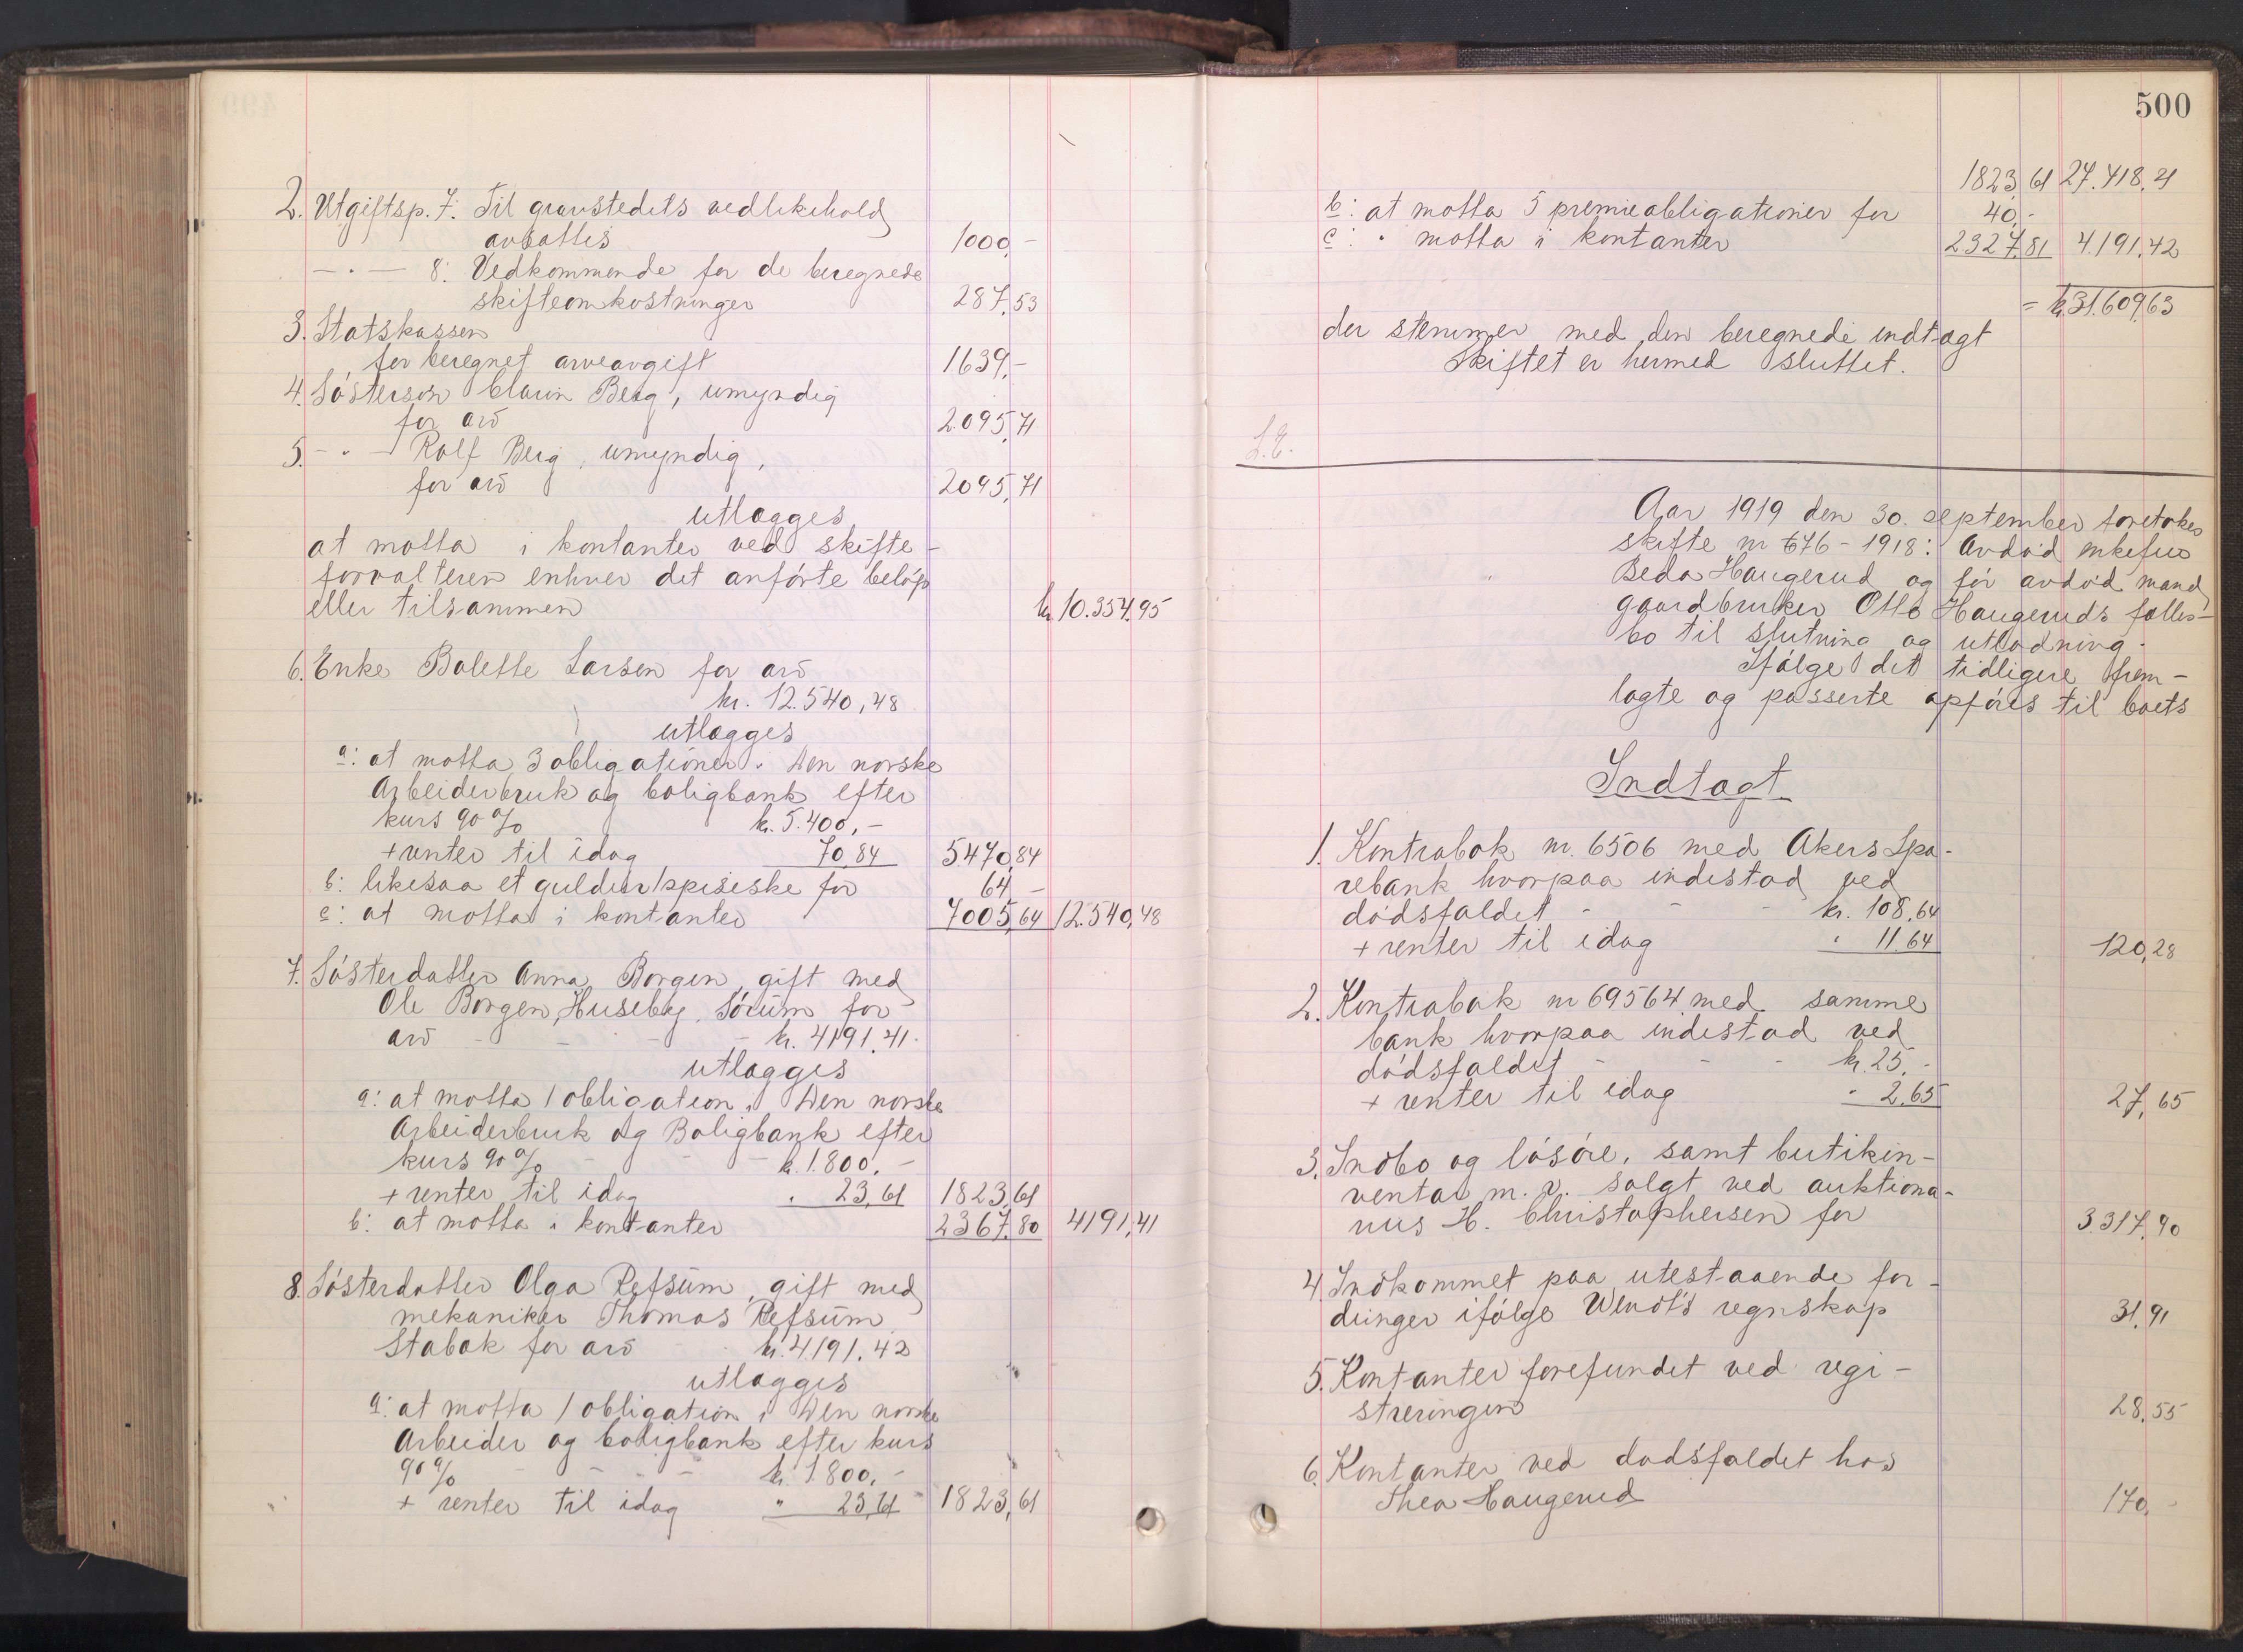 2. Utgiftsp. 7: Til gravstedets vedlikehold
avsattes 1000,-
— · — 8: Vedkommende for de beregnede
skifteomkostninger 287,53
3. Statskassen
for beregnet arveavgift 1639,-
4. Søstersøn Clarin Berg, umyndig
for arv 2.095,71
5. - " - Rolf Berg, umyndig,
for arv 2095,71
utlægges
at motta i kontanter ved skifte-
forvalteren enhver det anførte beløp
eller tilsammen kr. 10.354,95
6. Enke Balette Larsen for arv
kr. 12.540,48
utlægges
a: at motta 3 obligationer i Den norske
Arbeiderbruk og boligbank efter
kurs 90 % kr. 5.400,-
+ renter til idag 70,84 5470,84
b: likesaa et guldur
for 64,-
c: at motta i kontanter 7005,64 12.540,48
7. Søsterdatter Anna Borgen, gift med
Ole Borgen, Huseby, Sørum for
arv - - - - kr. 4191,41.
utlægges
a: at motta 1 obligation i Den norske
Arbeiderbruk og Boligbank efter
kurs 90 % - - - kr. 1.800,-
+ renter til idag " 23,61 1823,61
b: at motta i kontanter 2367,80 4191,41
8. Søsterdatter Olga Refsum, gift med
mekaniker Thomas Refsum
Stabæk for arv kr. 4191,42
utlægges
a: at motta 1 obligation i Den norske
Arbeider og boligbank efter kurs
90 % - - - - kr. 1.800,-
+ renter til idag " 23,61 1823,61
500
1823,61 27.418,21
b: at motta 5 premieobligationer for 40,-
c: " motta i kontanter 2327,81 4.191,42
= kr. 31.609,63
der stemmer med den beregnede indtægt
Skiftet er hermed sluttet.
L.E.
Aar 1919 den 30. september foretokes
skifte nr 676-1918: Avdød enkefru
Beda Haugerud og før avdød mand
gaardbruker Otto Haugeruds fælles-
bo til slutning og utlodning.
Ifølge det tidligere frem-
lagte og passerte opføres til boets
Indtægt
1. Kontrabok nr. 6506 med Akers Spa-
rebank hvorpaa indestod ved
dødsfaldet - - - kr. 108,64
+ renter til idag " 11,64 120,28
2. Kontrabok nr 69564 med samme
bank hvorpaa indestod ved
dødsfaldet - - - kr. 25,-
+ renter til idag " 2,65 27,65
3. Indbo og løsøre, samt butikin-
ventar m. v. solgt ved auktiona-
rius H. Christophersen for 3.317,90
4. Indkommet paa utestaaende for-
dringer ifølge Wendt's regnskap 31,91
5. Kontanter forefundet ved regi-
streringen 28,55
6. Kontanter ved dødsfaldet hos
Thea Haugerud 170,-